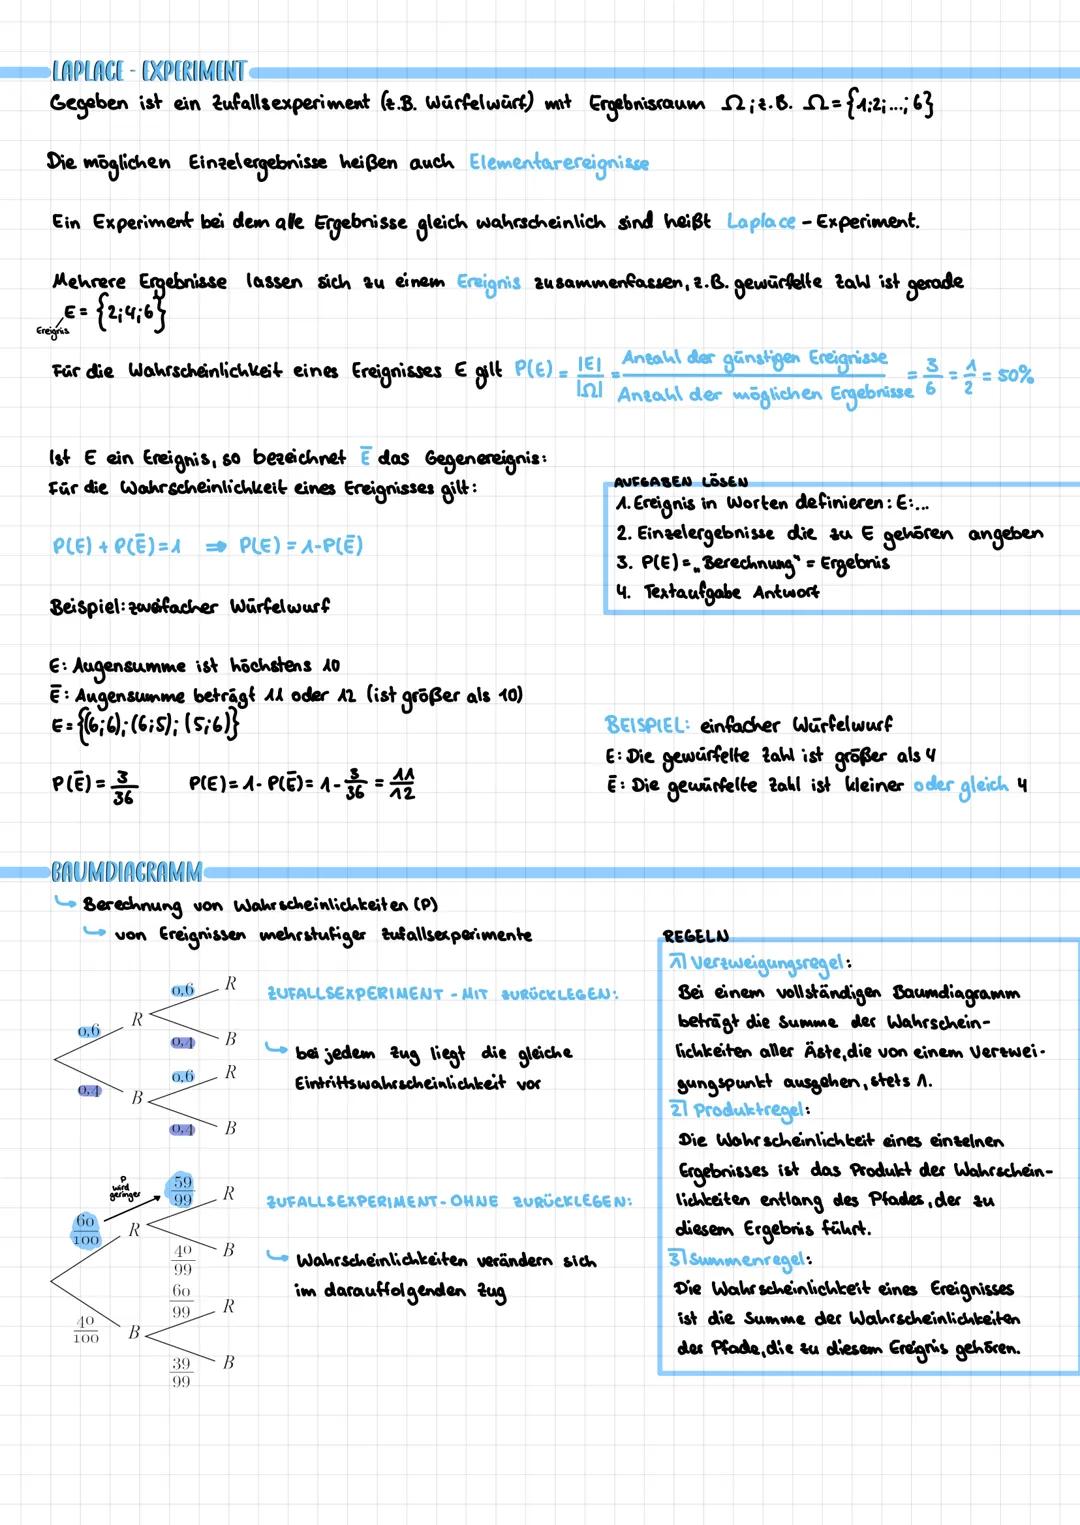 LAPLACE - EXPERIMENT
Gegeben ist ein Zufallsexperiment (z.B. Würfelwurf) mit Ergebnisraum Ω; z.B. Ω = {1;2;...;6}
Die möglichen Einzelergebnisse heißen auch Elementarereignisse
Ein Experiment bei dem alle Ergebnisse gleich wahrscheinlich sind heißt Laplace - Experiment.
Mehrere Ergebnisse lassen sich zu einem Ereignis zusammenfassen, z.B. gewürfelte Zahl ist gerade
E = {2;4;6}
Ereignis
Für die Wahrscheinlichkeit eines Ereignisses E gilt P(E) = |E| / |Ω| = Anzahl der günstigen Ereignisse / Anzahl der möglichen Ergebnisse = 3/6 = 1/2 = 50%
Ist E ein Ereignis, so bezeichnet E̅ das Gegenereignis:
Für die Wahrscheinlichkeit eines Ereignisses gilt:
P(E) + P(E̅) = 1 ⇒ P(E) = 1-P(E̅)
AUFGABEN LÖSEN
1. Ereignis in Worten definieren: E:...
2. Einzelergebnisse die zu E gehören angeben
3. P(E) = „Berechnung“ = Ergebnis
4. Textaufgabe Antwort
Beispiel: zweifacher Würfelwurf
E: Augensumme ist höchstens 10
E̅: Augensumme beträgt 11 oder 12 (ist größer als 10)
E = {(6;6); (6;5); (5;6)}
P(E̅) = 3/36 P(E) = 1 - P(E̅) = 1 - 3/36 = 11/12
BEISPIEL: einfacher Würfelwurf
E: Die gewürfelte Zahl ist größer als 4
E̅: Die gewürfelte Zahl ist kleiner oder gleich 4
BAUMDIAGRAMM
↳ Berechnung von Wahrscheinlichkeiten (P)
↳ von Ereignissen mehrstufiger Zufallsexperimente
0,6 R
0,6 R
0,4 B
0,4 B
0,6 R
0,4 B
ZUFALLSEXPERIMENT - MIT ZURÜCKLEGEN:
↳ bei jedem Zug liegt die gleiche
Eintrittswahrscheinlichkeit vor
P
wird
geringer
60/100 R
59/99 R
40/99 B
40/100 B
60/99 R
39/99 B
ZUFALLSEXPERIMENT - OHNE ZURÜCKLEGEN:
↳ Wahrscheinlichkeiten verändern sich
im darauffolgenden Zug
REGELN
1) Verzweigungsregel:
Bei einem vollständigen Baumdiagramm
beträgt die Summe der Wahrschein-
lichkeiten aller Äste, die von einem Verzwei-
gungspunkt ausgehen, stets 1.
2) Produktregel:
Die Wahrscheinlichkeit eines einzelnen
Ergebnisses ist das Produkt der Wahrschein-
lichkeiten entlang des Pfades, der zu
diesem Ergebnis führt.
3) Summenregel:
Die Wahrscheinlichkeit eines Ereignisses
ist die Summe der Wahrscheinlichkeiten
der Pfade, die zu diesem Ereignis gehören.